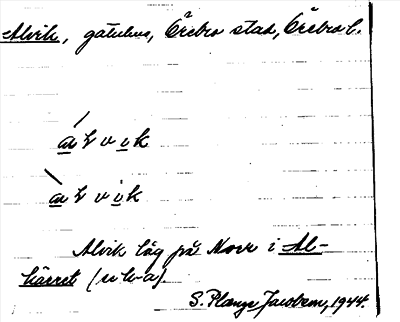 Alvik, gatuhus, Örebro stad, Örebro l.
alvik
àlvik
Alvik låg på Norr i Al-
kärret (u-k-a).
S. Plange Jacobson, 1944.